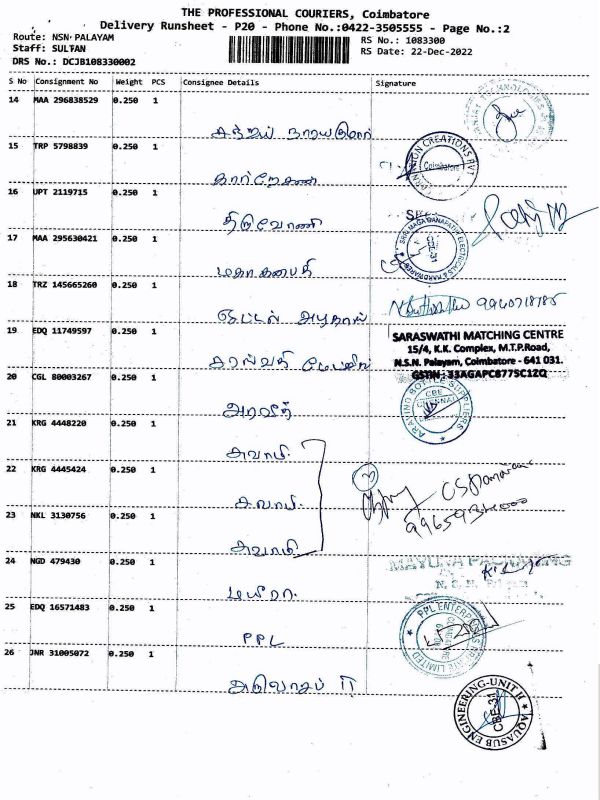 THE PROFESSIONAL COURIERS, Coimbatore
Delivery Runsheet - P20 - Phone No.:0422-3505555 - Page No.:2
Route: NSN PALAYAM
RS No.: 1083300
Staff: SULTAN
RS Date: 22-Dec-2022
DRS No.: DCJB108330002
S No Consignment No Weight PCS Consignee Details Signature
14 MAA 296838529 0.250 1
15 TRP 5798839 0.250 1
CREATIONS PVT
Coimbatore
16 UPT 2119715 0.250 1
திருவோணி
17 MAA 295630421 0.250 1
SRI MAGA GANAPATHI ELECTRICALS & HARDWARES
CBE-31
மகாகணபதி
18 TRZ 145665260 0.250 1
9960718185
19 EDQ 11749597 0.250 1
SARASWATHI MATCHING CENTRE
15/4, K.K. Complex, M.T.P.Road,
N.S.N. Palayam, Coimbatore - 641 031.
GSTIN : 33AGAPC8775C1ZQ
20 CGL 80003267 0.250 1
அரவிந்
ARAVIND BOTTLE SUPPLIERS
CBE
21 KRG 4448220 0.250 1
சுவாமி
22 KRG 4445424 0.250 1
சுவாமி
23 NKL 3130756 0.250 1
சுவாமி
24 NGD 479430 0.250 1
N. S. N.
மயூரா
25 EDQ 16571483 0.250 1
PPL ENTERPRISES PRIVATE LIMITED
PPL
26 JNR 31005072 0.250 1
AQUASUB ENGINEERING-UNIT II
CBE-31